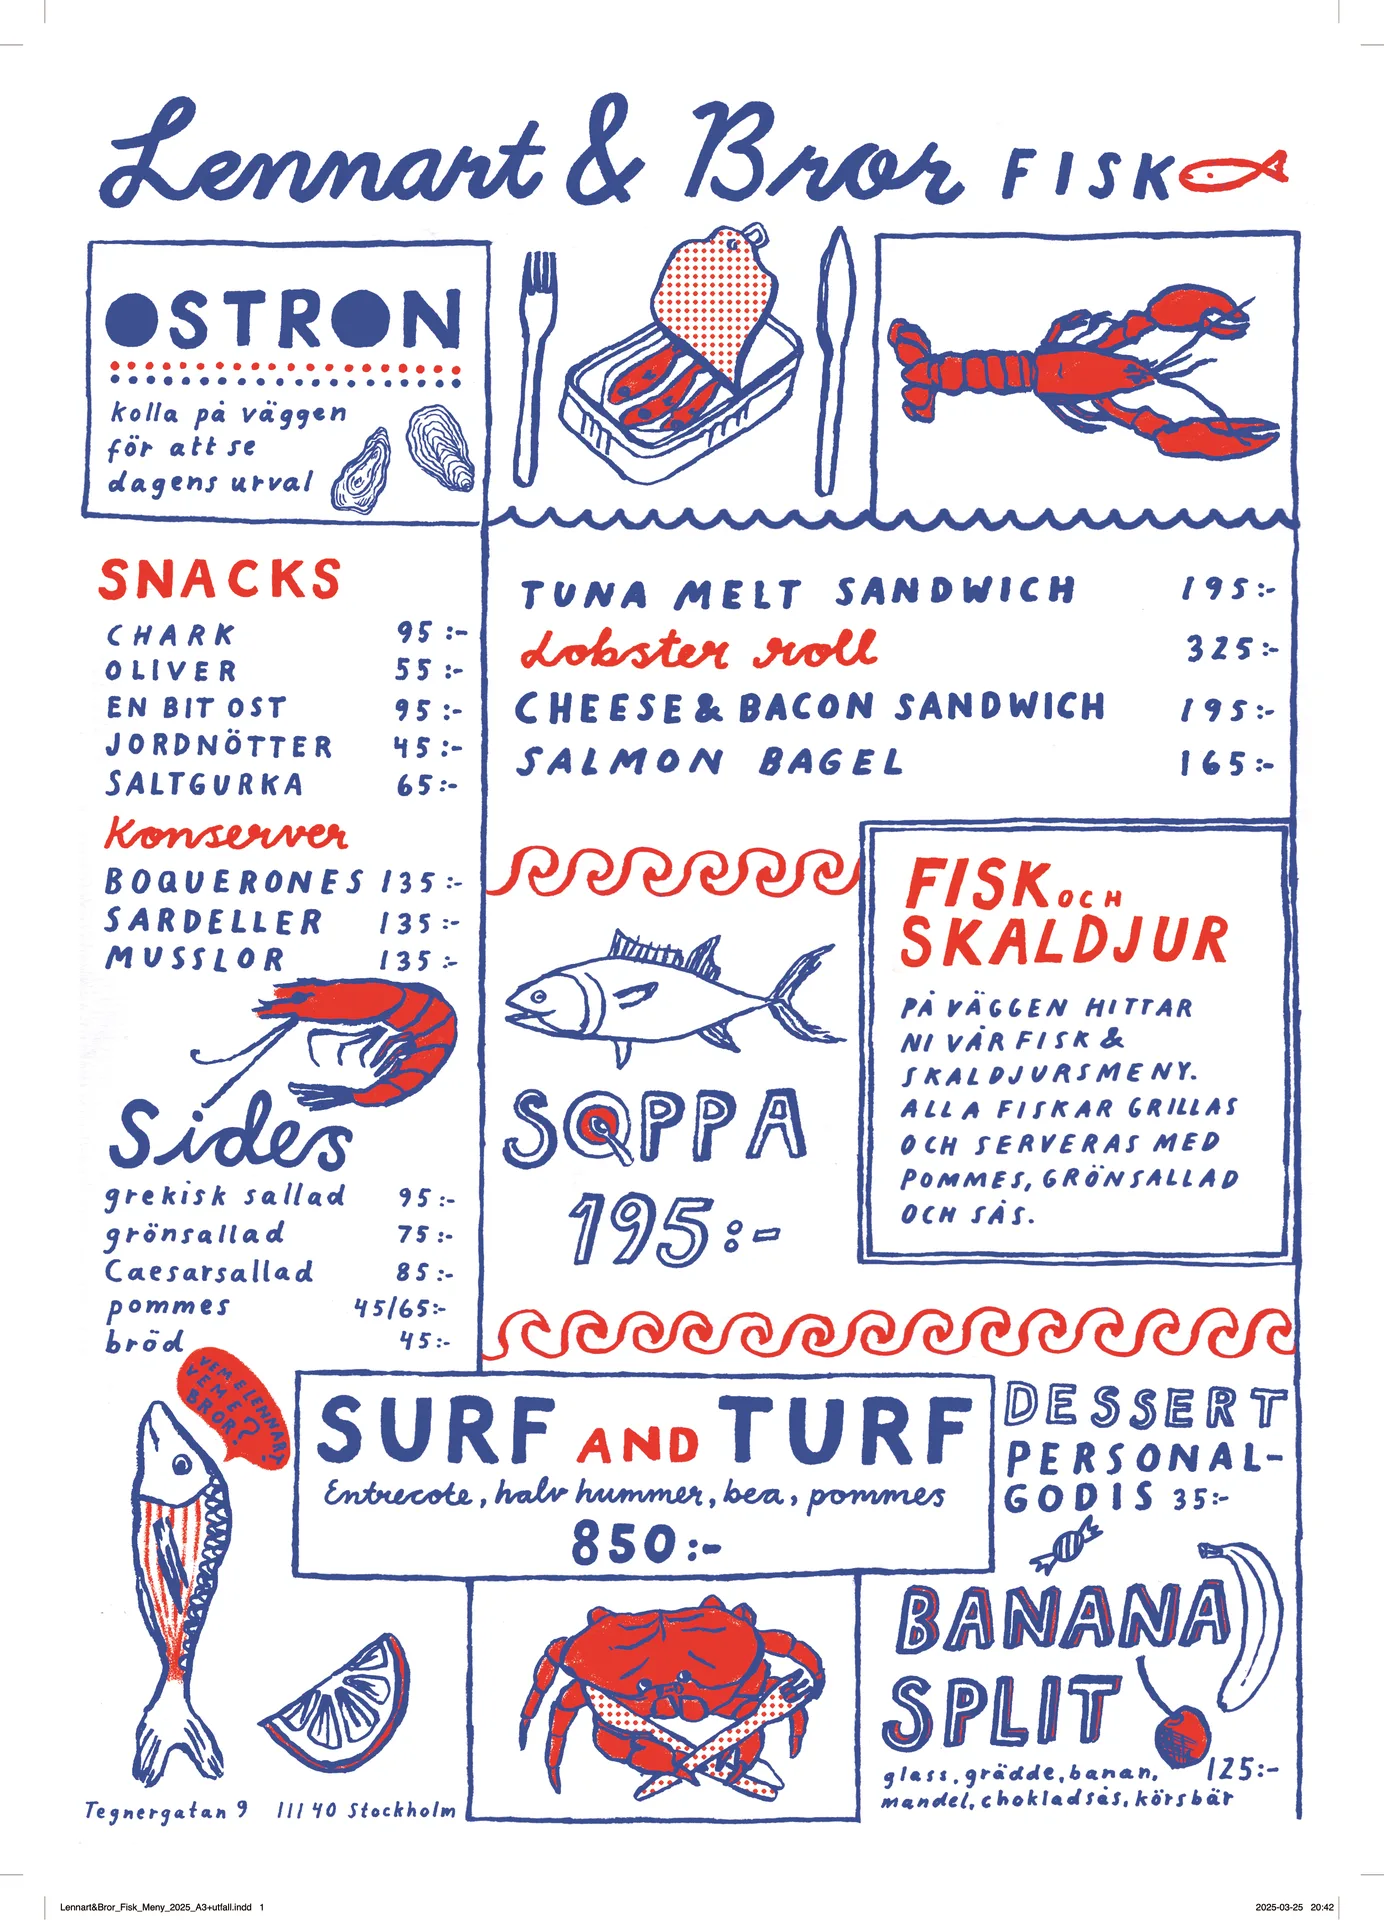 Lennart & Bror FISK
OSTRON
kolla på väggen
för att se
dagens urval
SNACKS
CHARK 95:-
OLIVER 55:-
EN BIT OST 95:-
JORDNÖTTER 45:-
SALTGURKA 65:-
Konserver
BOQUERONES 135:-
SARDELLER 135:-
MUSSLOR 135:-
Sides
grekisk sallad 95:-
grönsallad 75:-
Caesarsallad 85:-
pommes 45/65:-
bröd 45:-
TUNA MELT SANDWICH 195:-
Lobster roll 325:-
CHEESE & BACON SANDWICH 195:-
SALMON BAGEL 165:-
SOPPA
195:-
FISK OCH
SKALDJUR
PÅ VÄGGEN HITTAR
NI VÅR FISK &
SKALDJURSMENY.
ALLA FISKAR GRILLAS
OCH SERVERAS MED
POMMES, GRÖNSALLAD
OCH SÅS.
VEM E LENNART?
VEM E
BROR?
SURF AND TURF
Entrecote, halv hummer, bea, pommes
850:-
DESSERT
PERSONAL-
GODIS 35:-
BANANA
SPLIT
glass, grädde, banan, 125:-
mandel, chokladsås, körsbär
Tegnergatan 9 111 40 Stockholm
Lennart&Bror_Fisk_Meny_2025_A3+utfall.indd 1 2025-03-25 20:42